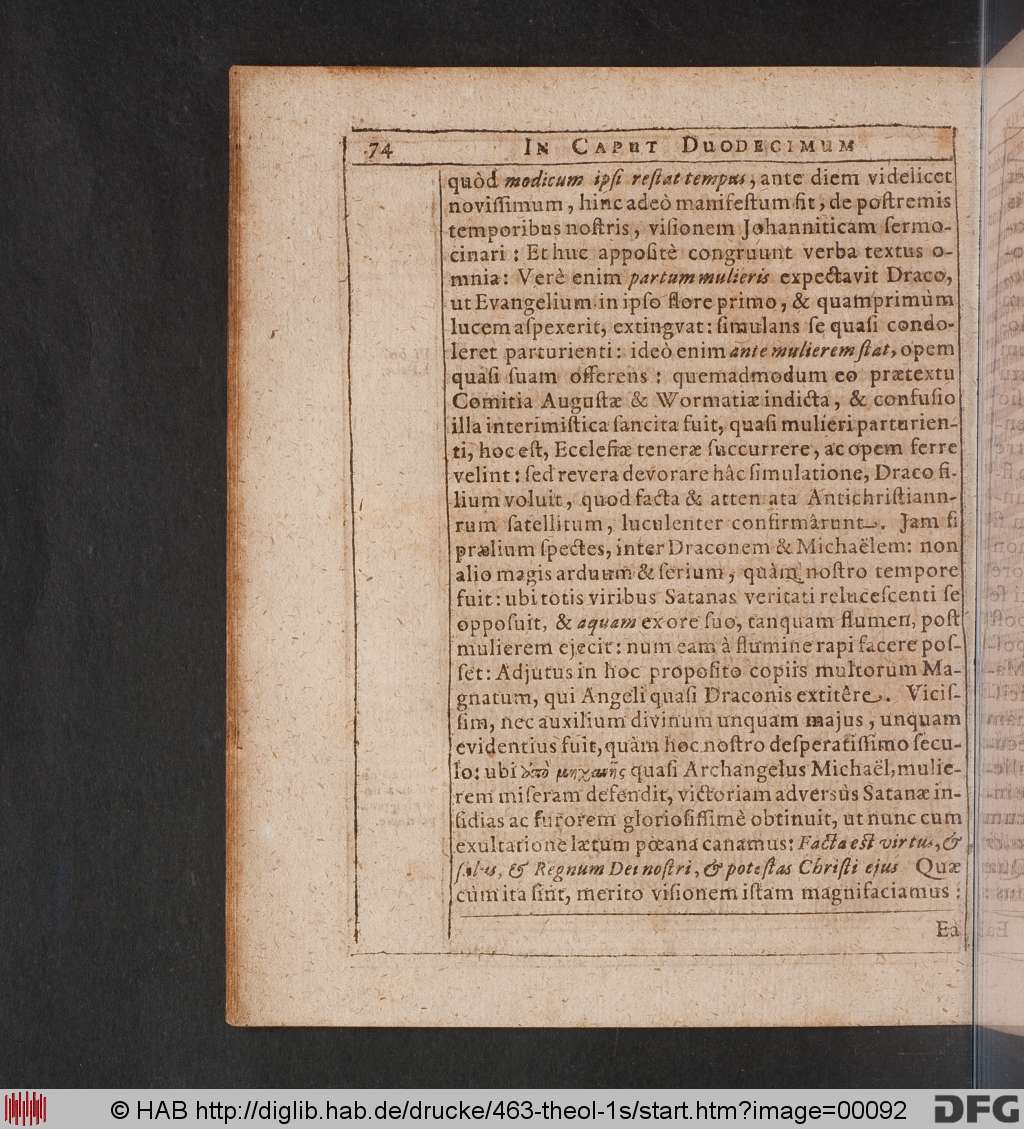 74 IN CAPUT DUODECIMUM
quòd modicum ipſi reſtat tempus, ante diem videlicet
noviſſimum, hinc adeò manifeſtum ſit, de poſtremis
temporibus noſtris, viſionem Johanniticam ſermo-
cinari: Et huc appoſitè congruunt verba textus o-
mnia: Verè enim partum mulieris expectavit Draco,
ut Evangelium in ipſo flore primo, & quamprimùm
lucem aſpexerit, extingvat: ſimulans ſe quaſi condo-
leret parturienti: ideò enim ante mulierem ſtat, opem
quaſi ſuam offerens: quemadmodum eo prætextu
Comitia Auguſtæ & Wormatiæ indicta, & confuſio
illa interimiſtica ſancita fuit, quaſi mulieri parturien-
ti, hoc eſt, Eccleſiæ teneræ ſuccurrere, ac opem ferre
velint: ſed revera devorare hâc ſimulatione, Draco fi-
lium voluit, quod facta & atten ata Antichriſtiann-
rum ſatellitum, luculenter confirmârunt. Jam ſi
prælium ſpectes, inter Draconem & Michaëlem: non
alio magis arduum & ſerium, quàm noſtro tempore
fuit: ubi totis viribus Satanas veritati relucescenti ſe
oppoſuit, & aquam ex ore ſuo, tanquam flumen, poſt
mulierem ejecit: num eam à flumine rapi facere poſ-
ſet: Adjutus in hoc propoſito copiis multorum Ma-
gnatum, qui Angeli quaſi Draconis extitêre. Viciſ-
ſim, nec auxilium divinum unquam majus, unquam
evidentius fuit, quàm hoc noſtro deſperatiſſimo ſecu-
lo: ubi ἀπὸ μηχανῆς quaſi Archangelus Michaël, mulie-
rem miſeram defendit, victoriam adversùs Satanæ in-
ſidias ac furorem glorioſiſſimè obtinuit, ut nunc cum
exultatione lætum pœana canamus: Facta eſt virtus, &
ſalus, & Regnum Dei noſtri, & poteſtas Chriſti ejus Quæ
cùm ita ſint, merito viſionem iſtam magnifaciamus:
Eà
© HAB http://diglib.hab.de/drucke/463-theol-1s/start.htm?image=00092
DFG